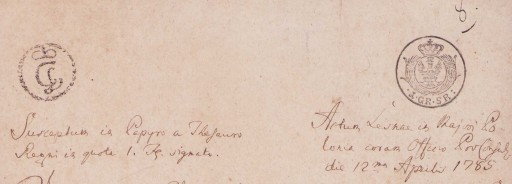 8.
4.GR.SR.
Susceptum in Papyro a Thesauro
Regni in quota 1. signata.
Actum Lesnae in Majori Po-
lonia coram Officio Proconsulari
die 12ma Aprilis 1785